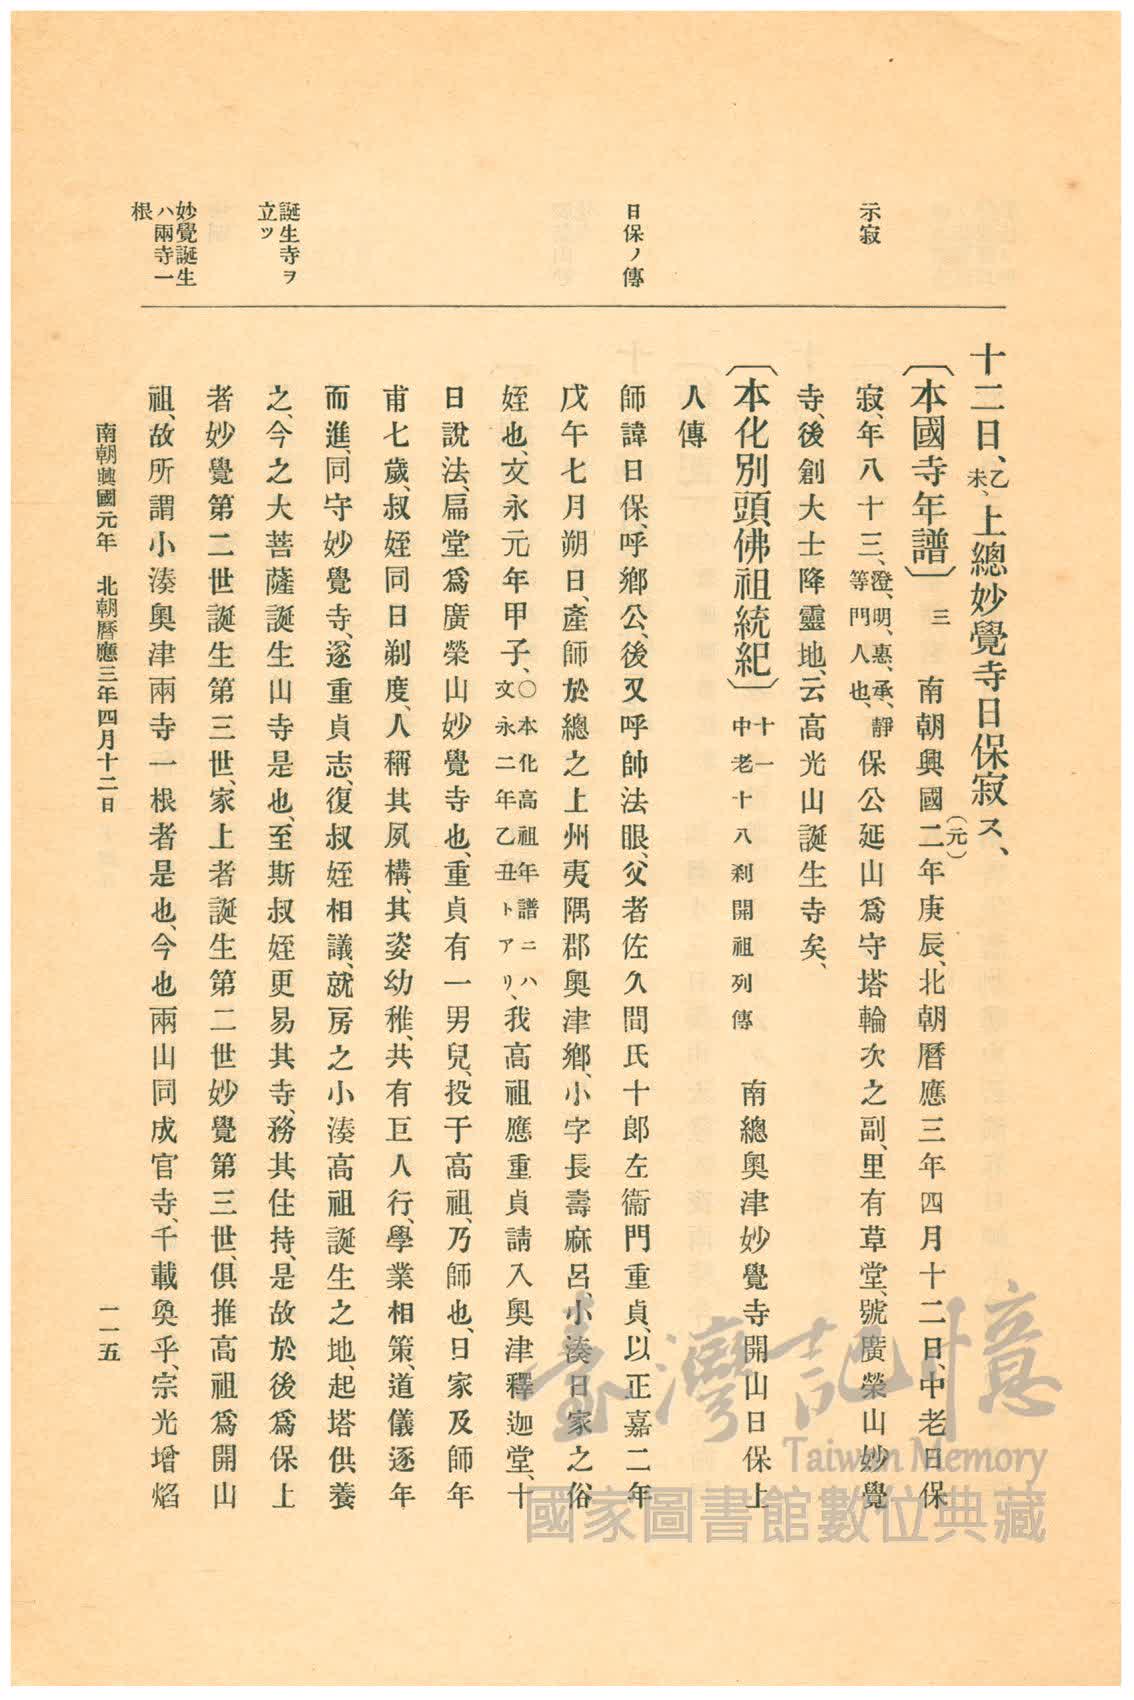 示寂
日保ノ傳
誕生寺ヲ
立ツ
妙覺誕生
ハ兩寺一
根
十二日、乙未、上總妙覺寺日保寂ス、
〔本國寺年譜〕三 南朝興國二(元)年庚辰、北朝曆應三年四月十二日、中老日保
寂、年八十三、澄、明、惠、承、靜等門人也、保公延山爲守塔輪次之副、里有草堂、號廣榮山妙覺
寺、後創大士降靈地、云高光山誕生寺矣、
〔本化別頭佛祖統紀〕十一中老十八刹開祖列傳 南總奥津妙覺寺開山日保上
人傳
師諱日保、呼鄉公、後又呼帥法眼、父者佐久間氏十郎左衞門重貞、以正嘉二年
戊午七月朔日、產師於總之上州夷隅郡奥津鄉、小字長壽麻呂、小湊日家之俗
姪也、文永元年甲子、○本化高祖年譜ニハ文永二年乙丑トアリ、我高祖應重貞請入奥津釋迦堂、十
日說法、扁堂爲廣榮山妙覺寺也、重貞有一男兒、投于高祖、乃師也、日家及師年
甫七歲、叔姪同日剃度、人稱其夙構、其姿幼稚、共有巨人行、學業相策、道儀逐年
而進、同守妙覺寺、遂重貞志、復叔姪相議、就房之小湊高祖誕生之地、起塔供養
之、今之大菩薩誕生山寺是也、至斯叔姪更易其寺、務其住持、是故於後爲保上
者妙覺第二世誕生第三世、家上者誕生第二世妙覺第三世、俱推高祖爲開山
祖、故所謂小湊奥津兩寺一根者是也、今也兩山同成官寺、千載奐乎、宗光增焰
南朝興國元年 北朝曆應三年四月十二日
一一五
臺灣記憶
Taiwan Memory
國家圖書館數位典藏